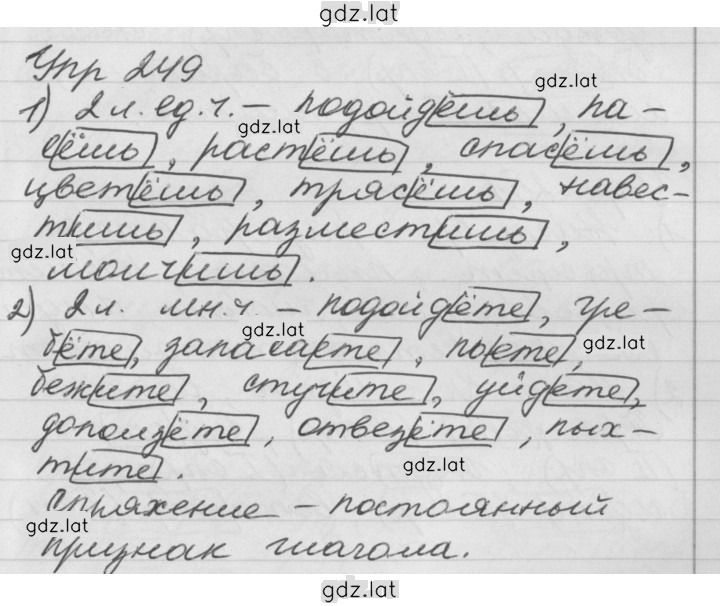 gdz.lat
Упр 249
gdz.lat
1) 2 л. ед. ч. – подойдёшь, па-
gdz.lat
сёшь, растёшь, спасёшь,
цветёшь, трясёшь, навес-
тишь, разместишь,
gdz.lat
молчишь.
2) 2 л. мн. ч – подойдёте, гре-
gdz.lat
бёте, запасаете, пьете,
gdz.lat
бежите, стучите, уйдете,
доползёте, отвезёте, пых-
gdz.lat
тите.
Спряжение – постоянный
gdz.lat
признак глагола.
gdz.lat